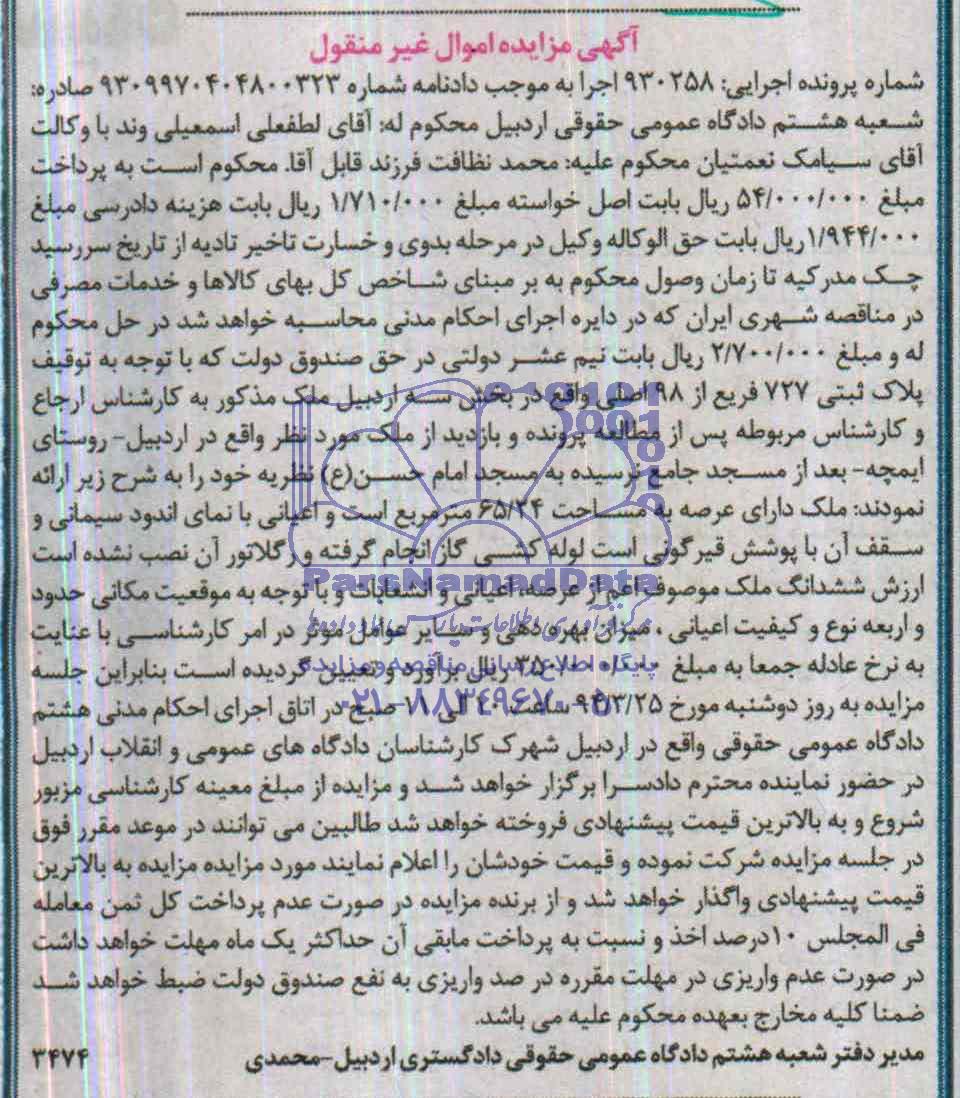 آگهی مزایده اموال غیر منقول
شماره پرونده اجرایی: ۹۳۰۲۵۸ اجرا به موجب دادنامه شماره ۹۳۰۹۹۷۰۴۰۴۸۰۰۳۲۳ صادره:
شعبه هشتم دادگاه عمومی حقوقی اردبیل محکوم له: آقای لطفعلی اسمعیلی وند با وکالت
آقای سیامک نعمتیان محکوم علیه: محمد نظافت فرزند قابل آقا. محکوم است به پرداخت
مبلغ ۵۴/۰۰۰/۰۰۰ ریال بابت اصل خواسته مبلغ ۱/۷۱۰/۰۰۰ ریال بابت هزینه دادرسی مبلغ
۱/۹۴۴/۰۰۰ریال بابت حق الوکاله وکیل در مرحله بدوی و خسارت تاخیر تادیه از تاریخ سررسید
چک مدرکیه تا زمان وصول محکوم به بر مبنای شاخص کل بهای کالاها و خدمات مصرفی
در مناقصه شهری ایران که در دایره اجرای احکام مدنی محاسبه خواهد شد در حل محکوم
له و مبلغ ۲/۷۰۰/۰۰۰ ریال بابت نیم عشر دولتی در حق صندوق دولت که با توجه به توقیف
پلاک ثبتی ۷۲۷ فریع از ۹۸ اصلی واقع در بخش سه اردبیل ملک مذکور به کارشناس ارجاع
و کارشناس مربوطه پس از مطالعه پرونده و بازدید از ملک مورد نظر واقع در اردبیل- روستای
ایمچه- بعد از مسجد جامع نرسیده به مسجد امام حسن(ع) نظریه خود را به شرح زیر ارائه
نمودند: ملک دارای عرصه به مساحت ۶۵/۲۴ مترمربع است و اعیانی با نمای اندود سیمانی و
سقف آن با پوشش قیرگونی است لوله کشی گاز انجام گرفته و رگلاتور آن نصب نشده است
ParsNamadData
ارزش ششدانگ ملک موصوف اعم از عرصه، اعیانی و انشعابات و با توجه به موقعیت مکانی حدود
و اربعه نوع و کیفیت اعیانی ، میزان بهره دهی و سایر عوامل موثر در امر کارشناسی با عنایت
به نرخ عادله جمعا به مبلغ ریال برآورد و تعیین گردیده است بنابراین جلسه
پایگاه اطلاع رسانی مناقصه و مزایده
مزایده به روز دوشنبه مورخ ۹۴/۳/۲۵ ساعت الی ۱۱ صبح در اتاق اجرای احکام مدنی هشتم
۰۲۱-۸۸۳۴۹۶۷۰-۵
دادگاه عمومی حقوقی واقع در اردبیل شهرک کارشناسان دادگاه های عمومی و انقلاب اردبیل
در حضور نماینده محترم دادسرا برگزار خواهد شد و مزایده از مبلغ معینه کارشناسی مزبور
شروع و به بالاترین قیمت پیشنهادی فروخته خواهد شد طالبین می توانند در موعد مقرر فوق
در جلسه مزایده شرکت نموده و قیمت خودشان را اعلام نمایند مورد مزایده مزایده به بالاترین
قیمت پیشنهادی واگذار خواهد شد و از برنده مزایده در صورت عدم پرداخت کل ثمن معامله
فی المجلس ۱۰درصد اخذ و نسبت به پرداخت مابقی آن حداکثر یک ماه مهلت خواهد داشت
در صورت عدم واریزی در مهلت مقرره در صد واریزی به نفع صندوق دولت ضبط خواهد شد
ضمنا کلیه مخارج بعهده محکوم علیه می باشد.
مدیر دفتر شعبه هشتم دادگاه عمومی حقوقی دادگستری اردبیل-محمدی ۳۴۷۴